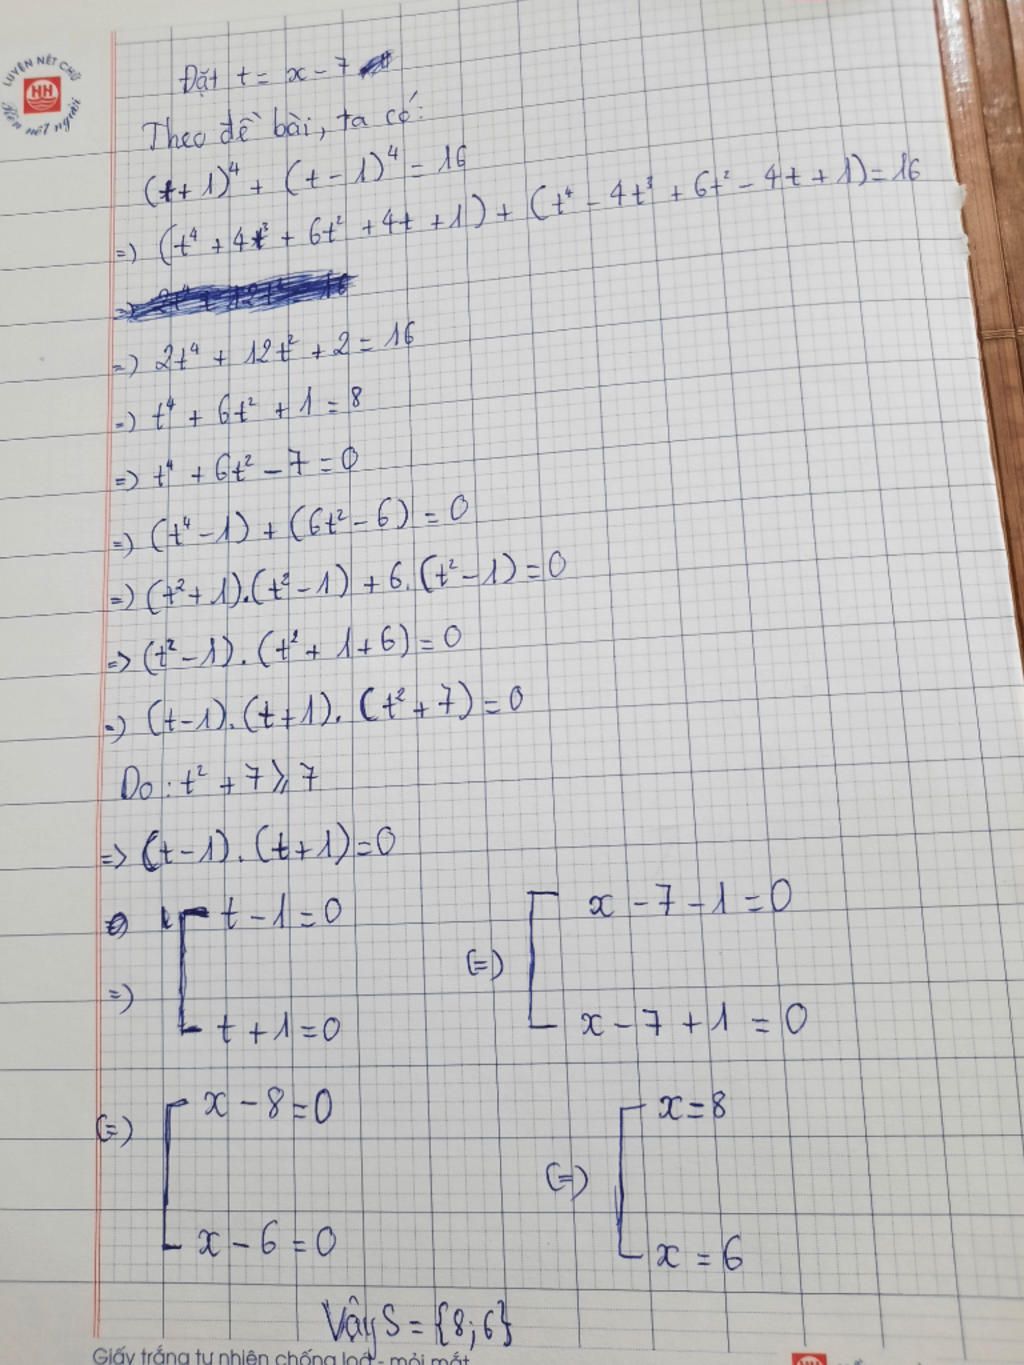 LUYỆN NÉT CHỮ
HH
Rèn nết người
Đặt t = x - 7
Theo đề bài, ta có:
(t + 1)⁴ + (t - 1)⁴ = 16
=> (t⁴ + 4t³ + 6t² + 4t + 1) + (t⁴ - 4t³ + 6t² - 4t + 1) = 16
=> 2t⁴ + 12t² + 2 = 16
=> t⁴ + 6t² + 1 = 8
=> t⁴ + 6t² - 7 = 0
=> (t⁴ - 1) + (6t² - 6) = 0
=> (t² + 1).(t² - 1) + 6.(t² - 1) = 0
=> (t² - 1).(t² + 1 + 6) = 0
=> (t - 1).(t + 1).(t² + 7) = 0
Do: t² + 7 ⩾ 7
=> (t - 1).(t + 1) = 0
=> [ t - 1 = 0
t + 1 = 0
(=) [ x - 7 - 1 = 0
x - 7 + 1 = 0
(=) [ x - 8 = 0
x - 6 = 0
(=) [ x = 8
x = 6
Vậy S = {8; 6}
Giấy trắng tự nhiên chống loá - mỏi mắt
HH